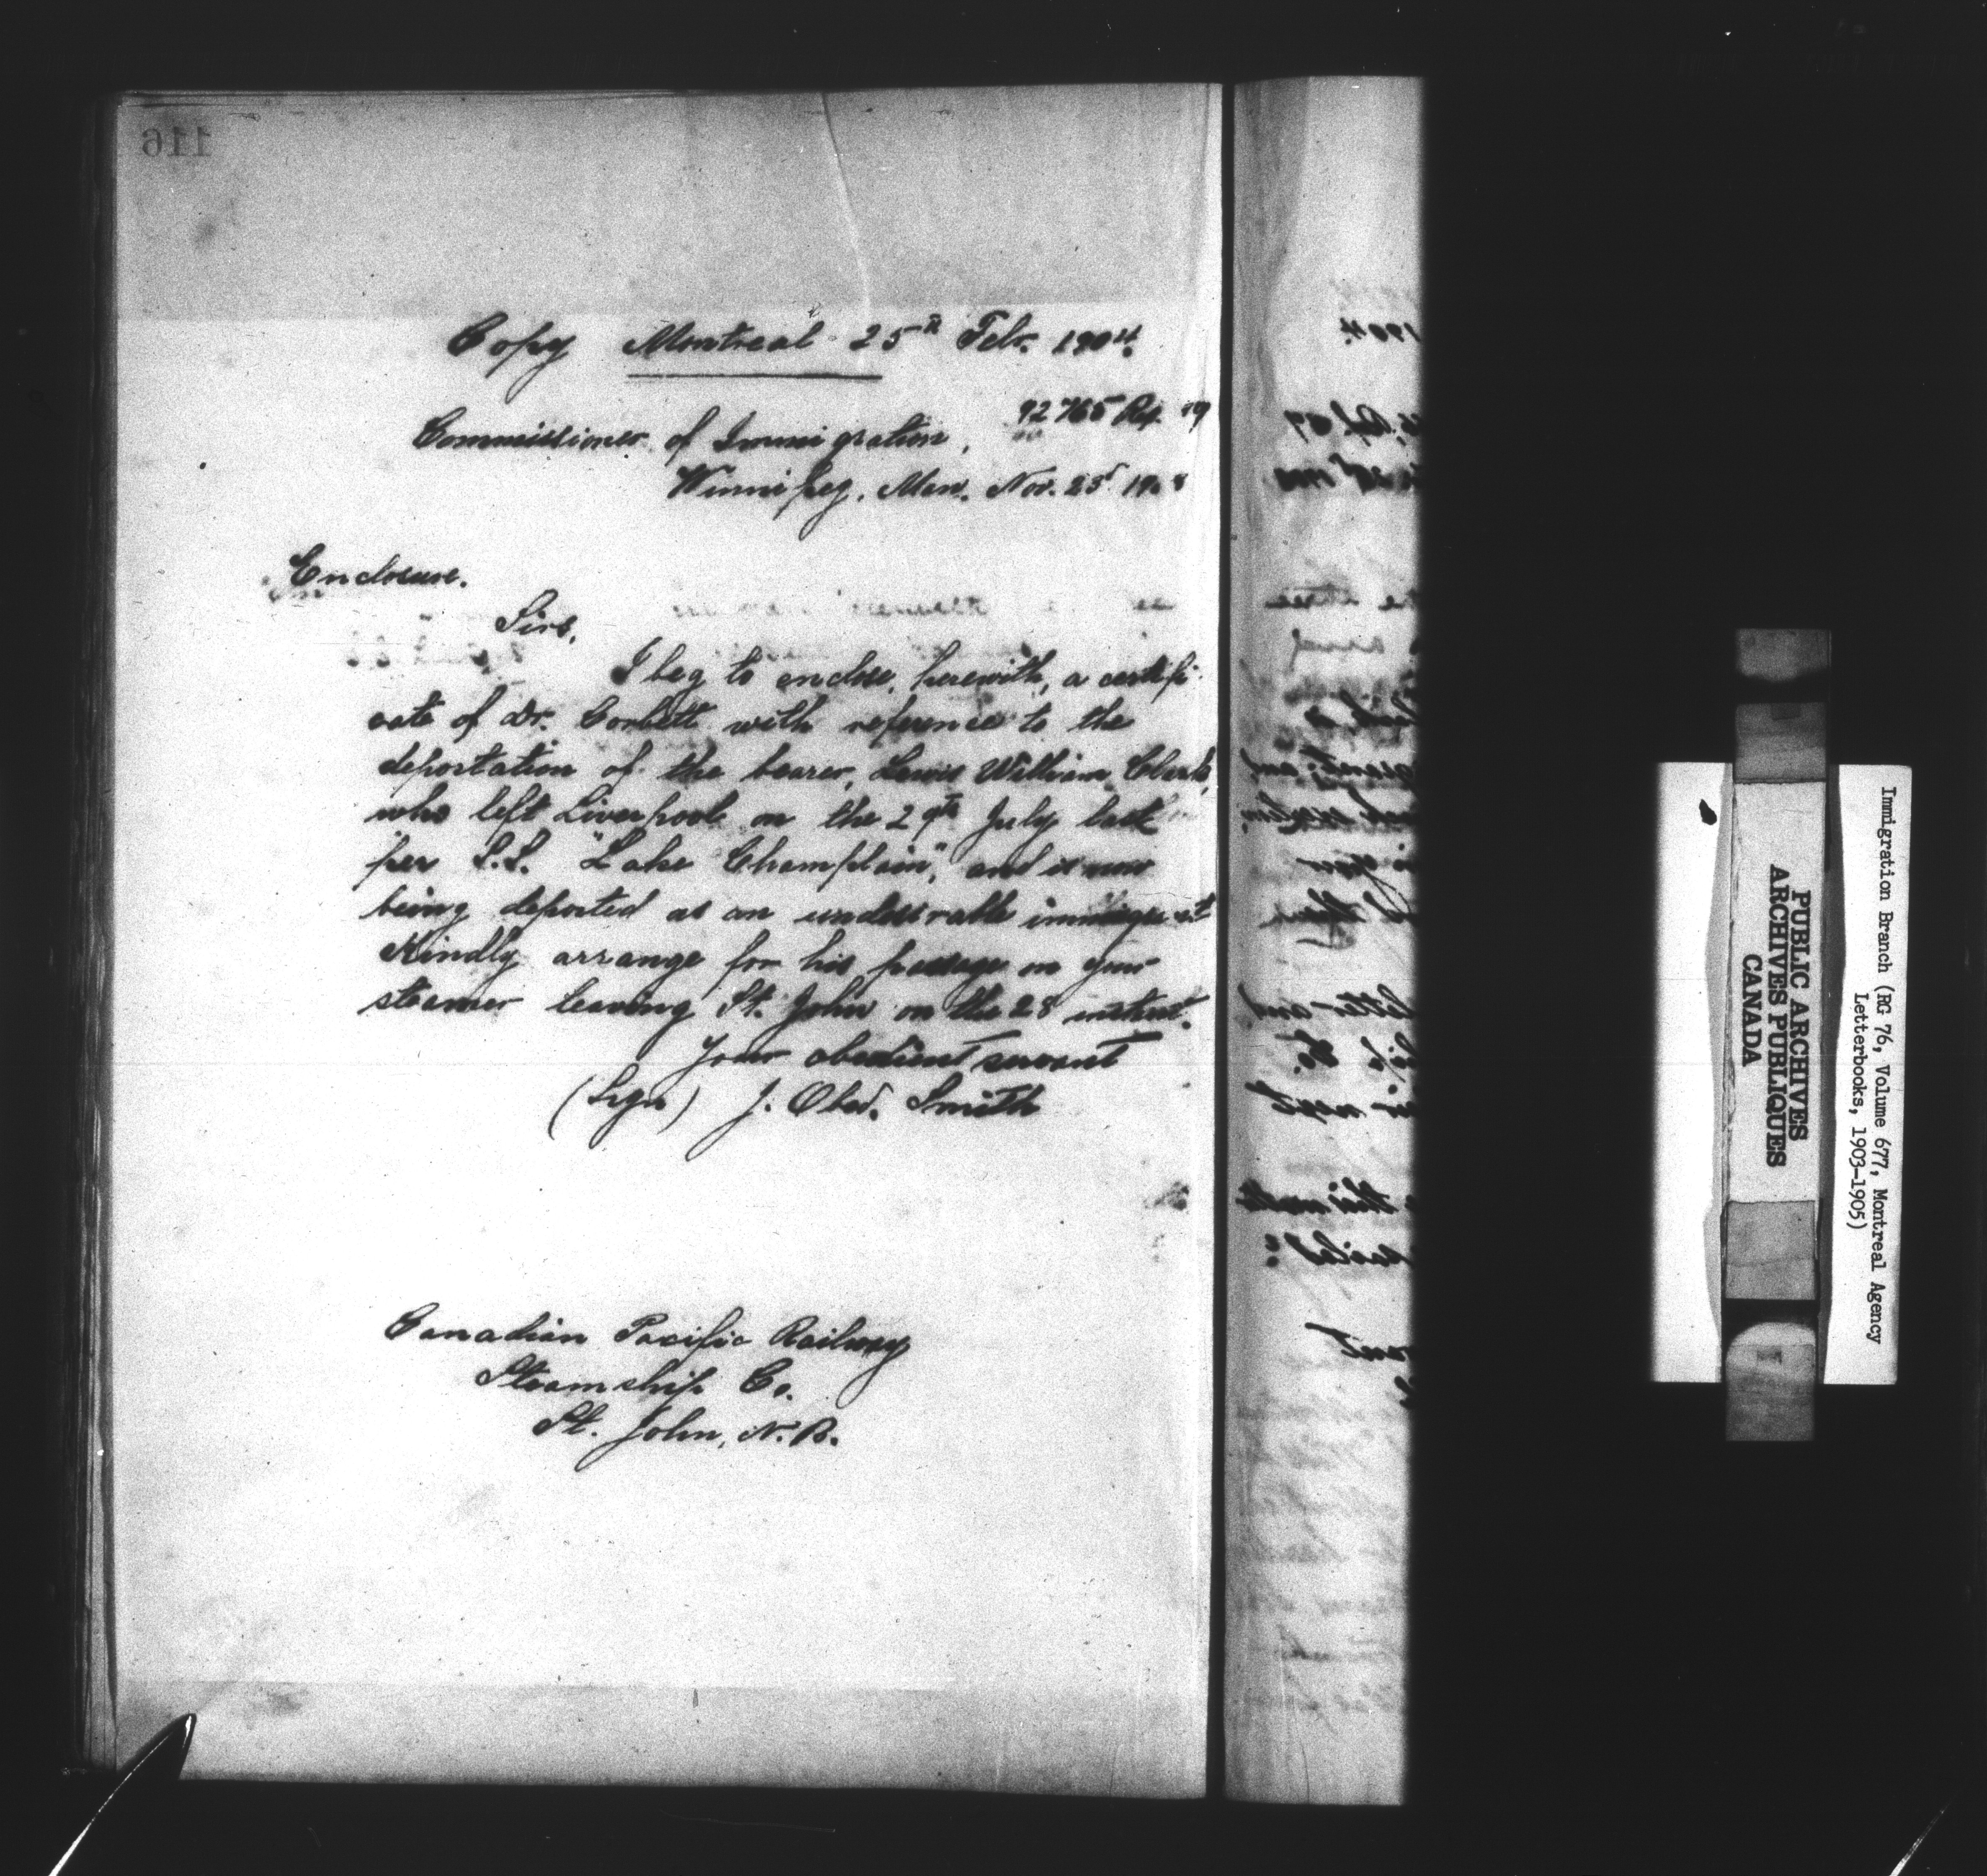 116
Copy Montreal 25th Feb. 1904.
92765 Rf. 19
Commissioner of Immigration,
Winnipeg, Man. Nov. 25th 1903
Enclosure.
Sirs,
I beg to enclose, herewith, a certifi-
cate of Dr. Corbett with reference to the
deportation of the bearer, Lewis William Clark,
who left Liverpool on the 29th July last
per S.S. "Lake Champlain", and is now
being deported as an undesirable immigrant
Kindly arrange for his passage on your
steamer leaving St. John on the 28 instant.
Your obedient servant
(Sgn) J. Obed. Smith
Canadian Pacific Railway
Steamship Co.
St. John, N.B.
PUBLIC ARCHIVES
ARCHIVES PUBLIQUES
CANADA
Immigration Branch (RG 76, Volume 677, Montreal Agency
Letterbooks, 1903-1905)